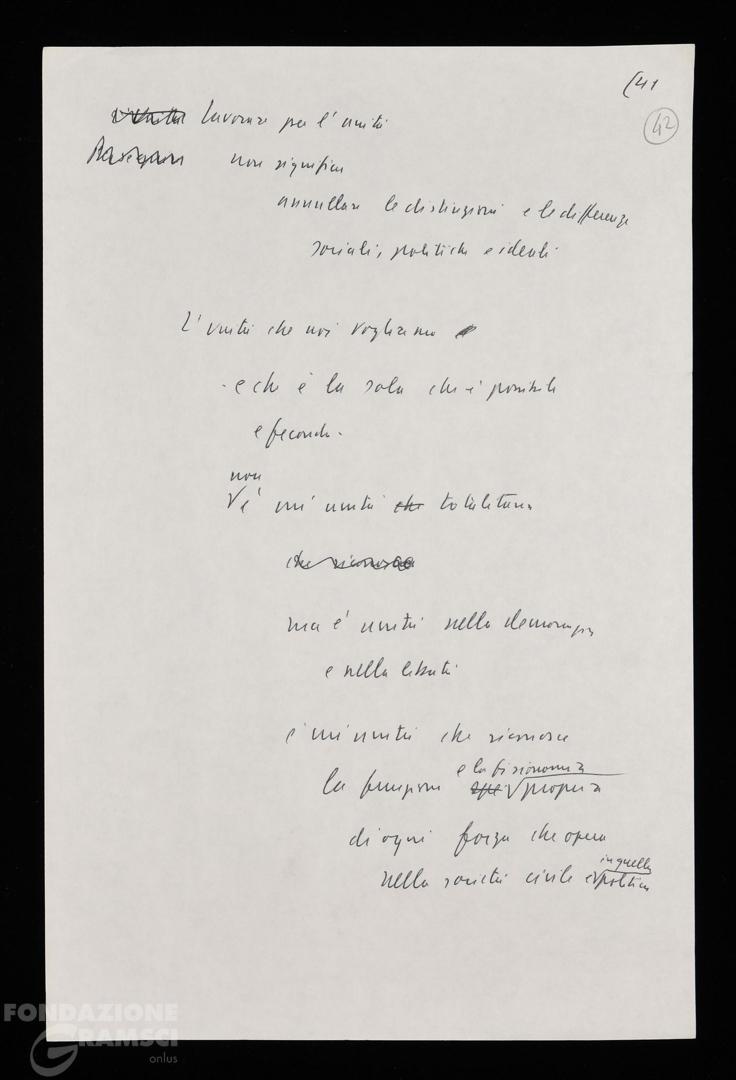 (41
42
Lavorare per l'unità
non significa
annullare le distinzioni e le differenze
sociali, politiche e ideali
L'unità che noi vogliamo
- e che è la sola che è possibile
e feconda -
non
√ è un'unità che totalitaria
che riconosce
ma è unità nella democrazia
e nella libertà
è un'unità che riconosce
e la fisionomia
la funzione √ propria
di ogni forza che opera
in quella
nella società civile e √ politica
FONDAZIONE
GRAMSCI
onlus